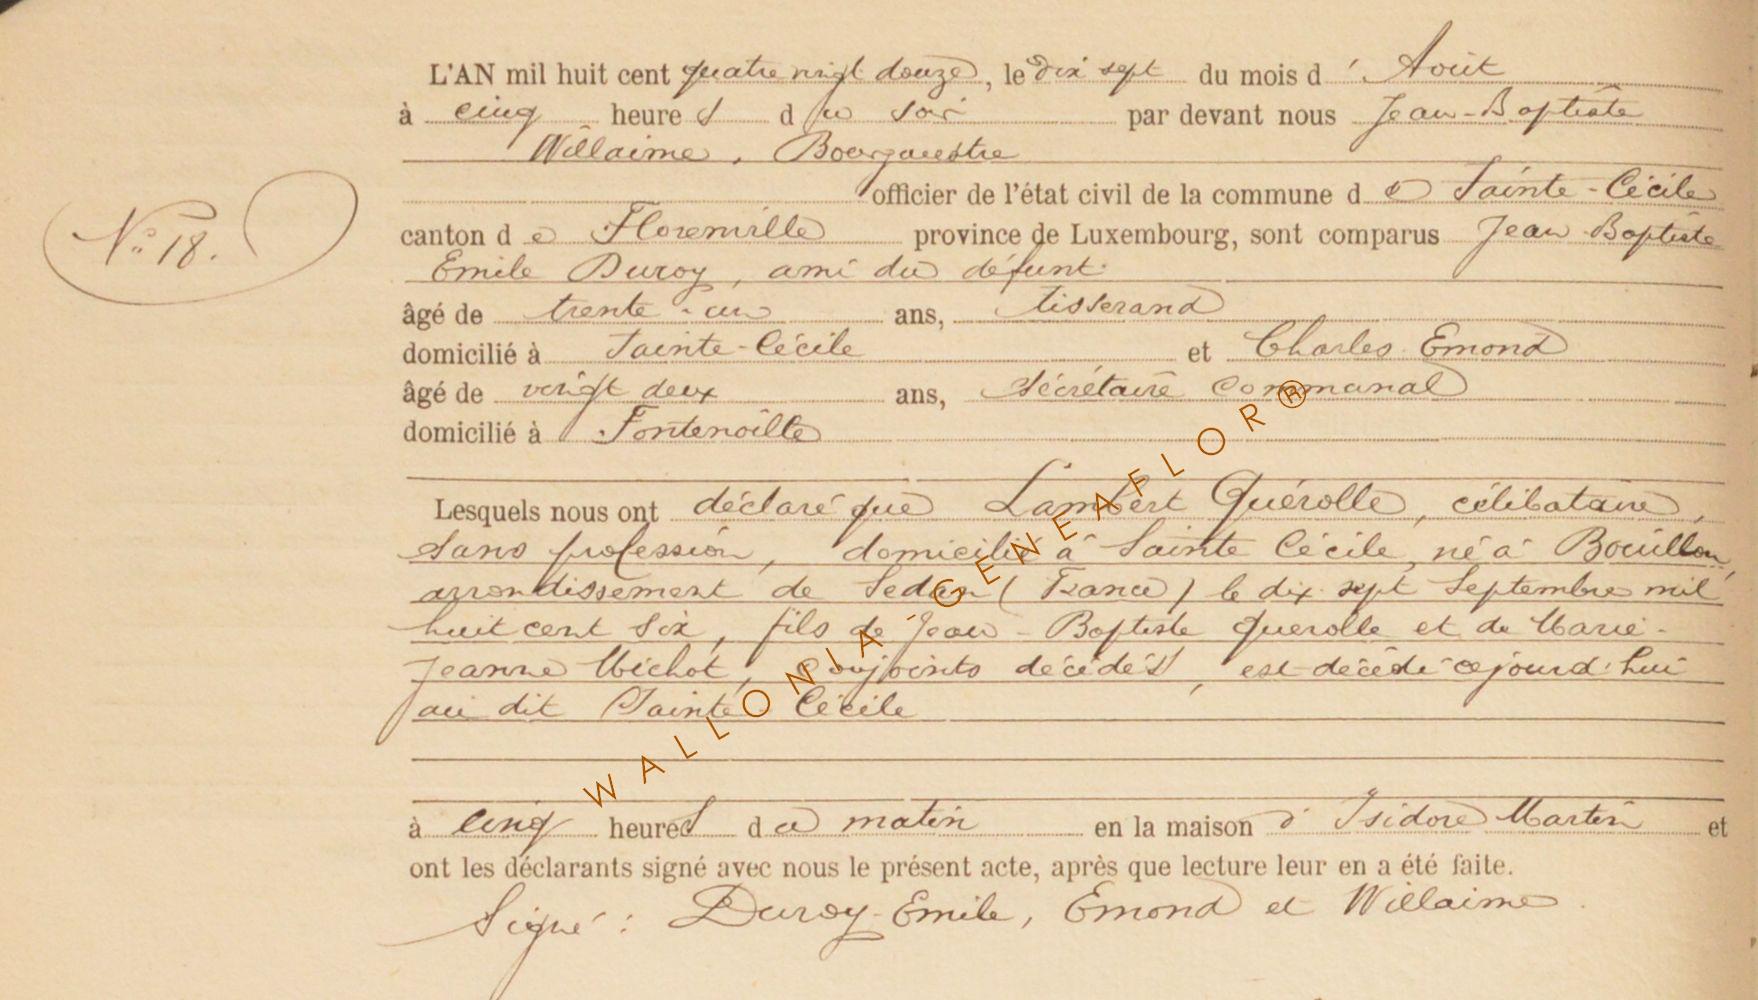 L'AN mil huit cent quatre vingt douze, le dix sept du mois d' Août
à cinq heures du soir par devant nous Jean-Baptiste
Willaime, Bourgmestre
officier de l'état civil de la commune de Sainte-Cécile
canton de Florenville province de Luxembourg, sont comparus Jean Baptiste
N° 18.
Emile Duroy, ami du défunt
âgé de trente-un ans, tisserand
domicilié à Sainte-Cécile et Charles Emond
âgé de vingt deux ans, Sécrétaire communal
domicilié à Fontenoille
Lesquels nous ont déclaré que Lambert Quérolle, célibataire,
sans profession, domicilié à Sainte Cécile, né à Bouillon,
arrondissement de Sedan (France) le dix sept Septembre mil
huit cent six, fils de Jean-Baptiste Querolle et de Marie-
Jeanne Michot, conjoints décédés, est décédé cejourd'hui
au dit Sainte Cécile
à cinq heures du matin en la maison d' Isidore Martin et
ont les déclarants signé avec nous le présent acte, après que lecture leur en a été faite.
Signé : Duroy-Emile, Emond et Willaime.
WALLONIA-GENEAFLOR®